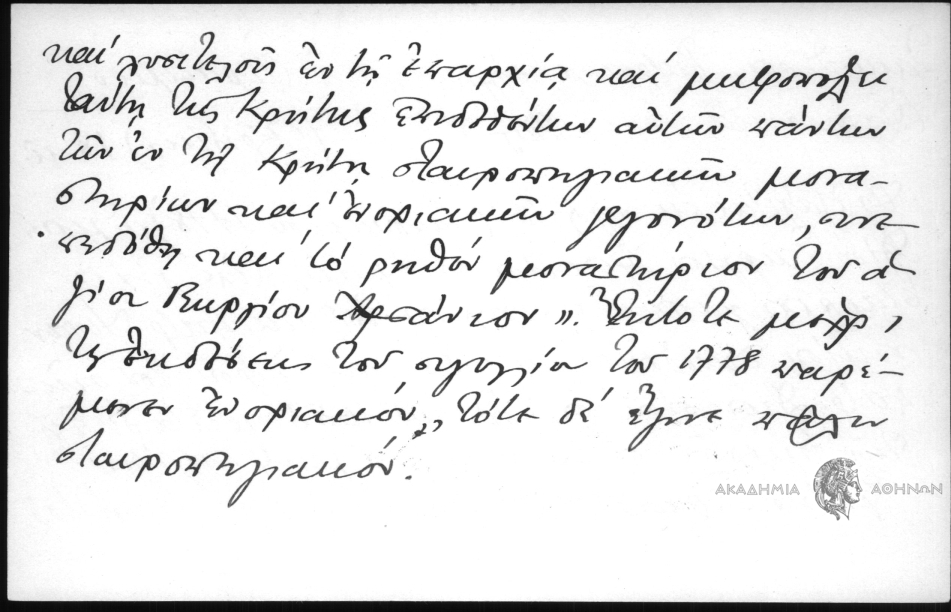 καί λυσιτελοῦς ἐν τῇ Ἐπαρχίᾳ καί μητροπόλει
ταύτῃ τῆς Κρήτης ἐπιδοθέντων αὐτῶν πάντων
τῶν ἐν τῇ Κρήτῃ σταυροπηγιακῶν μονα-
στηρίων καί ἐνοριακῶν γεγονότων, συνε-
πεδόθη καί τό ρηθέν μοναστήριον τοῦ ἁ-
γίου Γεωργίου Ἀρσάνιου». Ἔκτοτε μέχρι
τῆς ἐκδόσεως τοῦ σιγιλλίου τοῦ 1778 παρέ-
μεινεν ἐνοριακόν, τότε δέ ἔγινε πάλιν
σταυροπηγιακόν.
ΑΚΑΔΗΜΙΑ ΑΘΗΝΩΝ